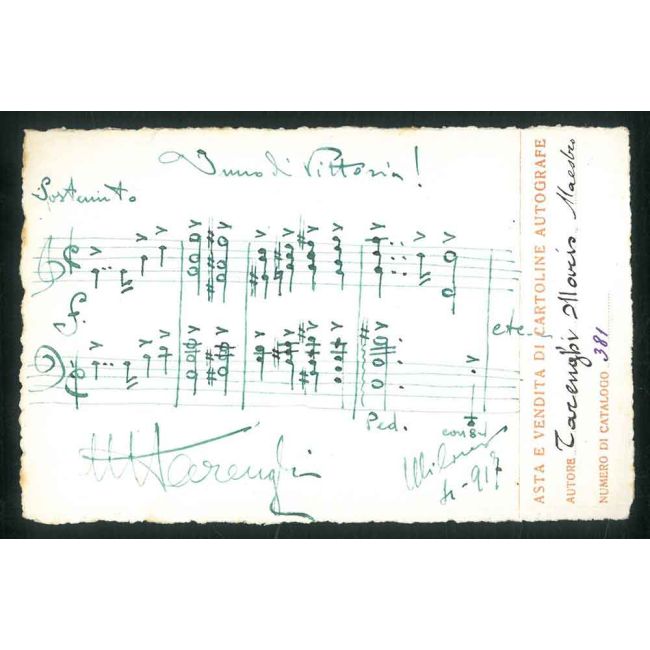 Inno di Vittoria!
Sostenuto
f.
etc.
Ped.
con 8
MTarenghi
Milano
917
ASTA E VENDITA DI CARTOLINE AUTOGRAFE
AUTORE Tarenghi Mario Maestro
NUMERO DI CATALOGO 381